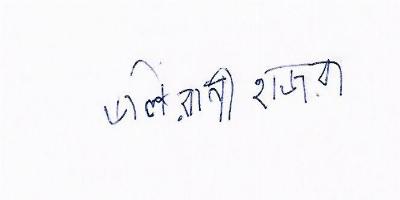 ডলি রানী হাজরা